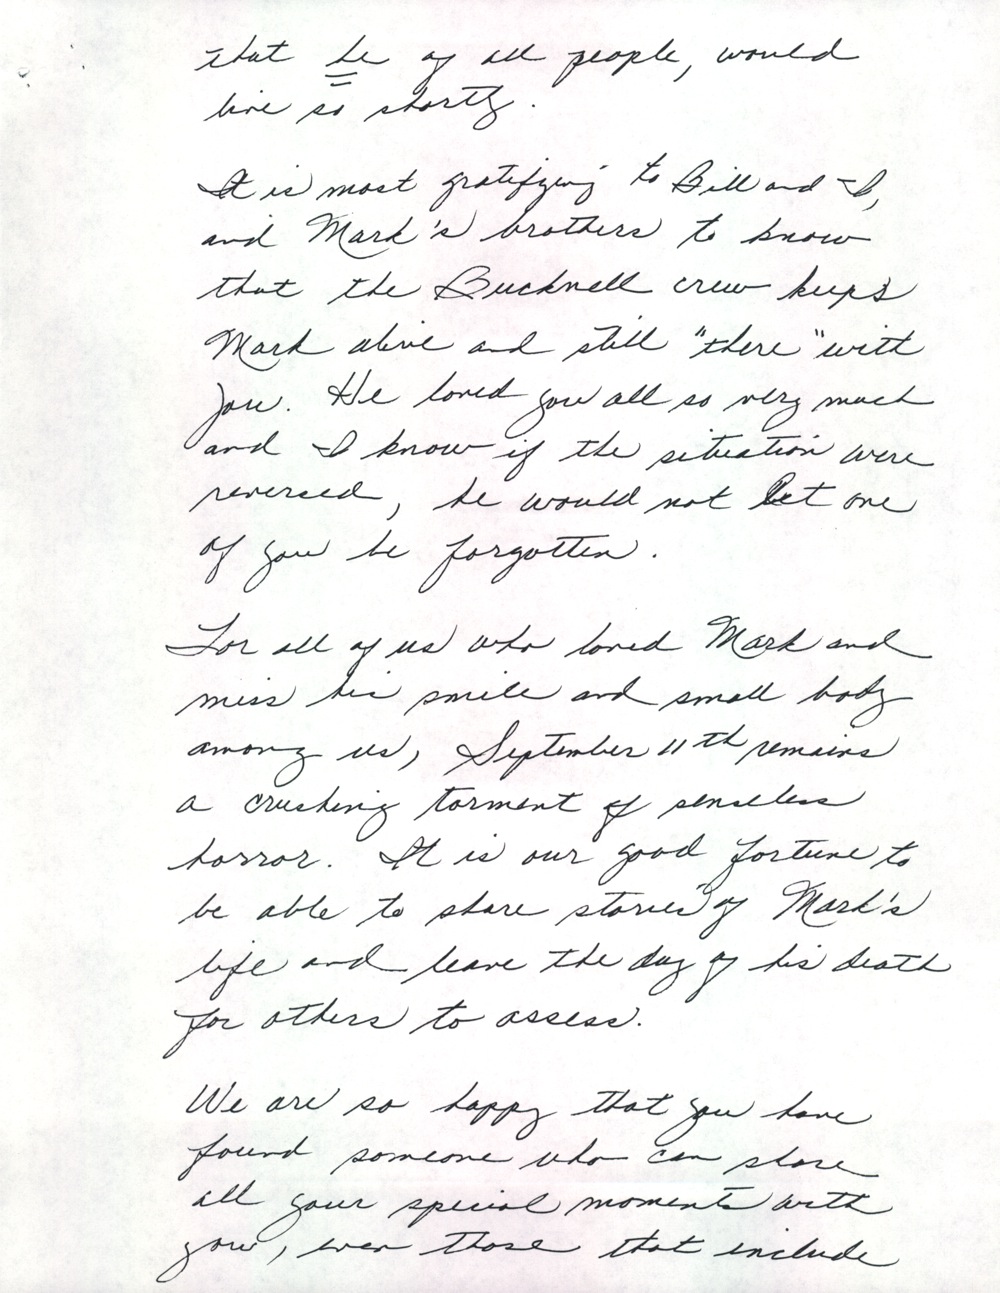 that he of all people, would
live so shortly.
It is most gratifying to Bill and I,
and Mark's brothers to know
that the Bucknell crew keeps
Mark alive and still "there" with
you. He loved you all so very much
and I know if the situation were
reversed, he would not let one
of you be forgotten.
For all of us who loved Mark and
miss his smile and small body
among us, September 11th remains
a crushing torment of senseless
horror. It is our good fortune to
be able to share stories of Mark's
life and leave the day of his death
for others to assess.
We are so happy that you have
found someone who can share
all your special moments with
you, even those that include